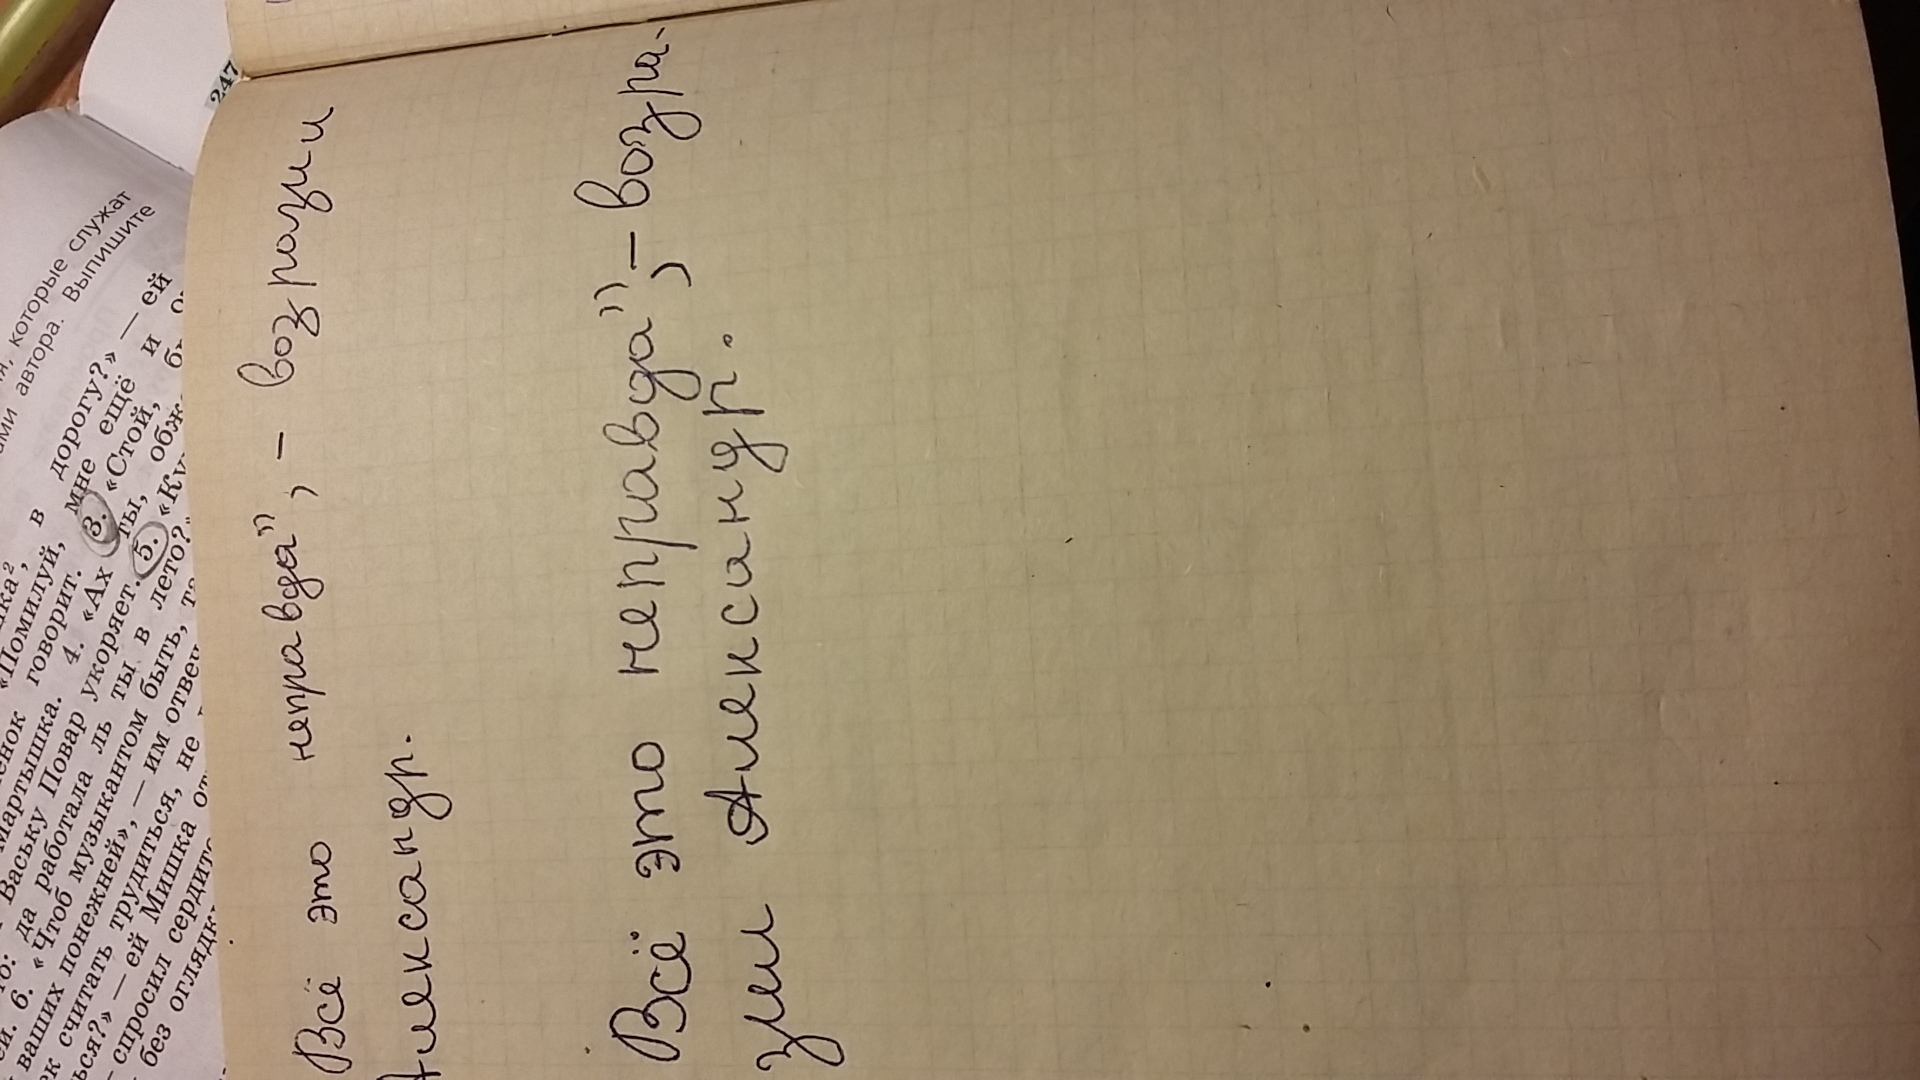 247
которые служат
автора. Выпишите
в дорогу?» — ей
«Помилуй, мне ещё и
говорит. 3. «Стой,
Мартышка. 4. «Ах ты,
Ваську Повар укоряет. 5.
да работала ль ты в лето?
6. «Чтоб музыкантом быть,
ваших понежней», — им
считать трудиться, не
— ей Мишка
— спросил
без
Всё это неправда", - возрази
Александр.
Всё это неправда", - возра-
зил Александр.